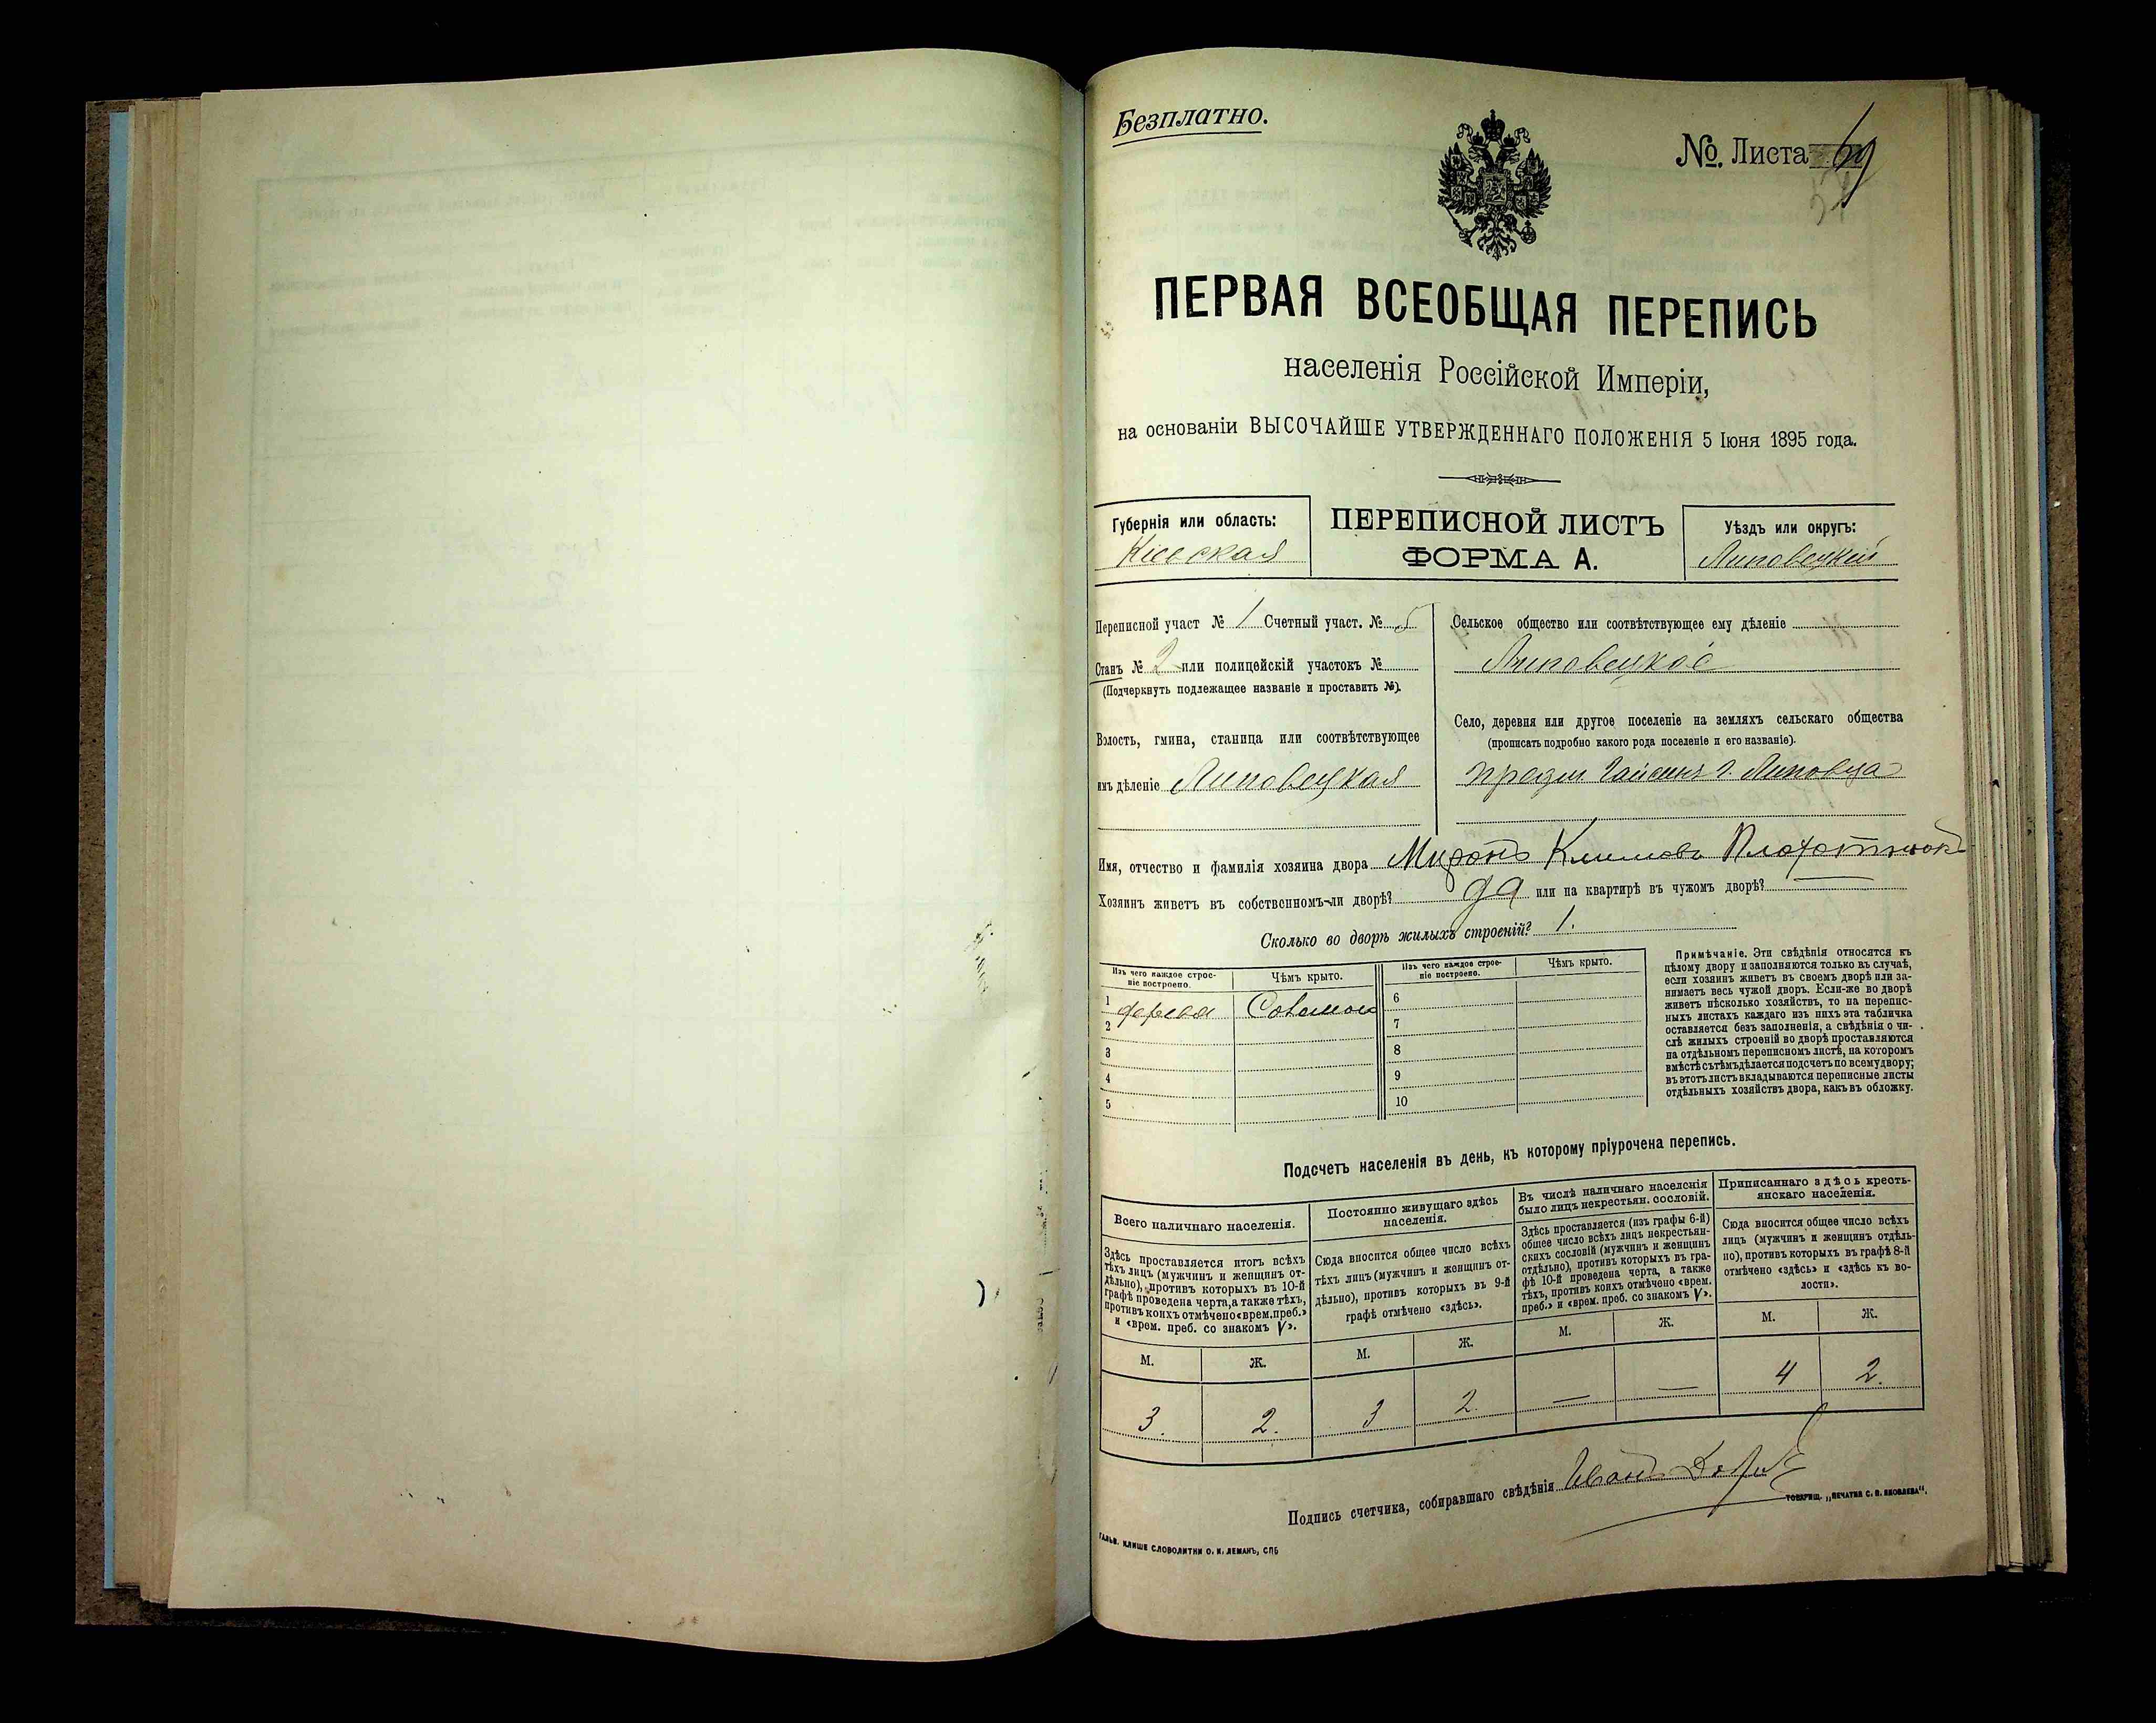 Безплатно.
№. Листа 69
ПЕРВАЯ ВСЕОБЩАЯ ПЕРЕПИСЬ
населенія Россійской Имперіи,
на основаніи ВЫСОЧАЙШЕ УТВЕРЖДЕННАГО ПОЛОЖЕНІЯ 5 Іюня 1895 года.
Губернія или область:
Кіевская
ПЕРЕПИСНОЙ ЛИСТЪ
ФОРМА А.
Уѣздъ или округъ:
Липовецкій
Переписной участ № 1 Счетный участ. № 5
Станъ № 2 или полицейскій участокъ №
(Подчеркнуть подлежащее названіе и проставить №).
Волость, гмина, станица или соотвѣтствующее
имъ дѣленіе Липовецкая
Сельское общество или соотвѣтствующее ему дѣленіе
Липовецкое
Село, деревня или другое поселеніе на земляхъ сельскаго общества
(прописать подробно какого рода поселеніе и его названіе).
предм. Гайсинъ г. Липовца
Имя, отчество и фамилія хозяина двора Миронъ Климовъ Плахотнюкъ
Хозяинъ живетъ въ собственномъ-ли дворѣ? да или на квартирѣ въ чужомъ дворѣ? —
Сколько во дворѣ жилыхъ строеній? 1.
Изъ чего каждое строе-
ніе построено.
Чѣмъ крыто.
Изъ чего каждое строе-
ніе построено.
Чѣмъ крыто.
1 дерева Соломою
2
3
4
5
6
7
8
9
10
Примѣчаніе. Эти свѣдѣнія относятся къ
цѣлому двору и заполняются только въ случаѣ,
если хозяинъ живетъ въ своемъ дворѣ или за-
нимаетъ весь чужой дворъ. Если-же во дворѣ
живетъ нѣсколько хозяйствъ, то на перепис-
ныхъ листахъ каждаго изъ нихъ эта табличка
оставляется безъ заполненія, а свѣдѣнія о чи-
слѣ жилыхъ строеній во дворѣ проставляются
на отдѣльномъ переписномъ листѣ, на которомъ
вмѣстѣ съ тѣмъ дѣлается подсчетъ по всему двору;
въ этотъ листъ вкладываются переписные листы
отдѣльныхъ хозяйствъ двора, какъ въ обложку.
Подсчетъ населенія въ день, къ которому пріурочена перепись.
Всего наличнаго населенія.
Здѣсь проставляется итогъ всѣхъ
тѣхъ лицъ (мужчинъ и женщинъ от-
дѣльно), противъ которыхъ въ 10-й
графѣ проведена черта, а также тѣхъ,
противъ коихъ отмѣчено «врем. преб.»
и «врем. преб. со знакомъ V».
М. Ж.
3. 2.
Постоянно живущаго здѣсь
населенія.
Сюда вносится общее число всѣхъ
тѣхъ лицъ (мужчинъ и женщинъ от-
дѣльно), противъ которыхъ въ 9-й
графѣ отмѣчено «здѣсь».
М. Ж.
3 2.
Въ числѣ наличнаго населенія
было лицъ некрестьян. сословій.
Здѣсь проставляется (изъ графы 6-й)
общее число всѣхъ лицъ некрестьян-
скихъ сословій (мужчинъ и женщинъ
отдѣльно), противъ которыхъ въ гра-
фѣ 10-й проведена черта, а также
тѣхъ, противъ коихъ отмѣчено «врем.
преб.» и «врем. преб. со знакомъ V».
М. Ж.
— —
Приписаннаго здѣсь кресть-
янскаго населенія.
Сюда вносится общее число всѣхъ
лицъ (мужчинъ и женщинъ отдѣль-
но), противъ которыхъ въ графѣ 8-й
отмѣчено «здѣсь» и «здѣсь къ во-
лости».
М. Ж.
4 2.
Подпись счетчика, собиравшаго свѣдѣнія Иванъ
ТОВАРИЩ. „ПЕЧАТНЯ С. П. ЯКОВЛЕВА“.
ГАЛЬВ. КЛИШЕ СЛОВОЛИТНИ О. И. ЛЕМАНЪ, СПБ